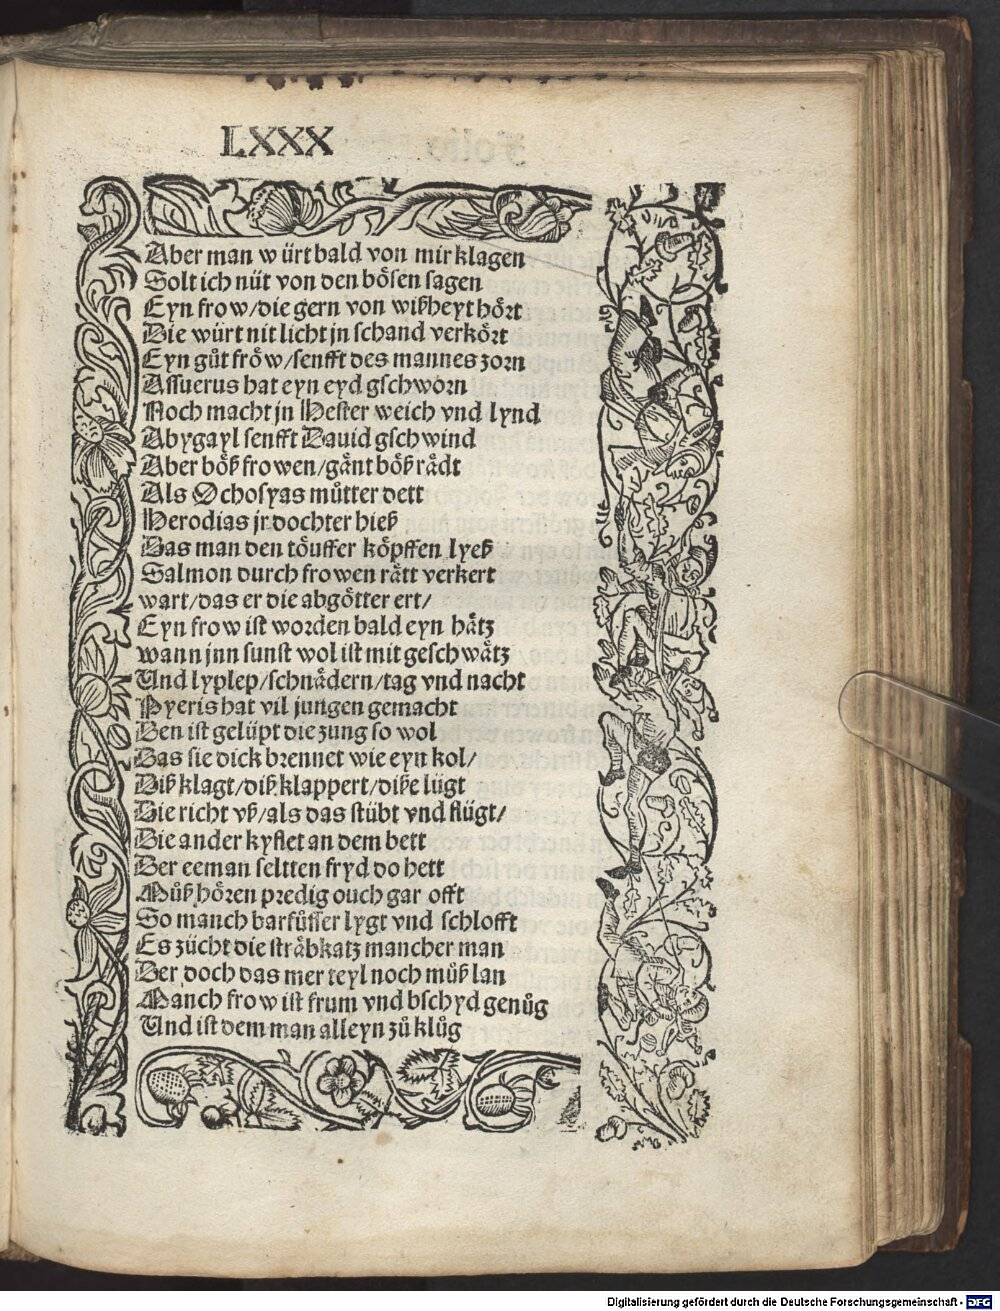 LXXX
Aber man würt bald von mir klagen
Solt ich nüt von den bösen sagen
Eyn frow/die gern von wißheyt hört
Die würt nit licht jn schand verkört
Eyn gůt fröw/senfft des mannes zorn
Assuerus hat eyn eyd gschworn
Noch macht jn Hester weich vnd lynd
Abygayl senfft Dauid gschwind
Aber böß frowen/gänt böß rädt
Als Ochosyas můtter dett
Herodias jr dochter hieß
Das man den töuffer köpffen lyeß
Salmon durch frowen rätt verkert
wart/das er die abgötter ert/
Eyn frow ist worden bald eyn hätz
wann jnn sunst wol ist mit geschwätz
Und lyplep/schnädern/tag vnd nacht
Pyeris hat vil jungen gemacht
Den ist gelüpt die zung so wol
Das sie dick brennet wie eyn kol/
Diß klagt/diß klappert/diße lügt
Die richt vß/als das stübt vnd flügt/
Die ander kyflet an dem bett
Der eeman seltten fryd do hett
Můß hören predig ouch gar offt
So manch barfůsser lygt vnd schlofft
Es zücht die sträbkatz mancher man
Der doch das mer teyl noch můß lan
Manch frow ist frum vnd bschyd genůg
Und ist dem man alleyn zů klůg
Digitalisierung gefördert durch die Deutsche Forschungsgemeinschaft - DFG